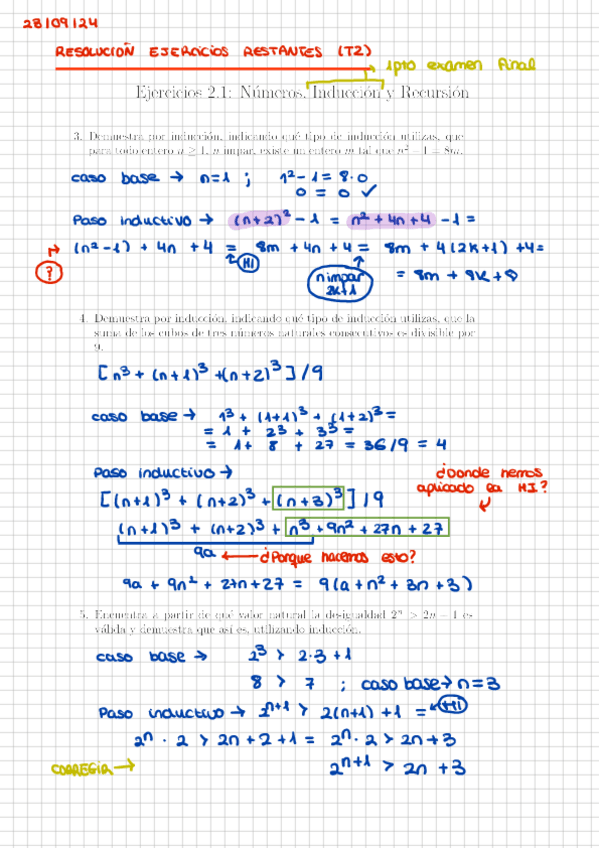 28/09/24
RESOLUCIOÑ EJERCICIOS RESTANTES (T2)
1pto examen Final
Ejercicios 2.1: Números, Inducción y Recursión
3. Demuestra por inducción, indicando qué tipo de inducción utilizas, que
para todo entero n ≥ 1, n impar, existe un entero m tal que n² − 1 = 8m.
caso base → n=1 ; 1² - 1 = 8·0
0 = 0 ✓
Paso inductivo → (n+2)² - 1 = n² + 4n + 4 - 1 =
(n² - 1) + 4n + 4 = 8m + 4n + 4 = 8m + 4(2k+1) + 4 =
?
HI
n impar
2k+1
= 8m + 8k + 8
4. Demuestra por inducción, indicando qué tipo de inducción utilizas, que la
suma de los cubos de tres números naturales consecutivos es divisible por
9.
[n³ + (n+1)³ + (n+2)³] / 9
caso base → 1³ + (1+1)³ + (1+2)³ =
= 1 + 2³ + 3³ =
= 1 + 8 + 27 = 36/9 = 4
Paso inductivo →
¿Donde hemos
aplicado la HI?
[(n+1)³ + (n+2)³ + (n+3)³] / 9
(n+1)³ + (n+2)³ + n³ + 9n² + 27n + 27
9a ← ¿Porque hacemos esto?
9a + 9n² + 27n + 27 = 9(a + n² + 3n + 3)
5. Encuentra a partir de qué valor natural la desigualdad 2ⁿ > 2n − 1 es
válida y demuestra que así es, utilizando inducción.
caso base → 2³ > 2·3 + 1
8 > 7 ; caso base → n=3
Paso inductivo → 2ⁿ⁺¹ > 2(n+1) + 1 = HI
2ⁿ · 2 > 2n + 2 + 1 = 2ⁿ · 2 > 2n + 3
CORREGIR → 2ⁿ⁺¹ > 2n + 3